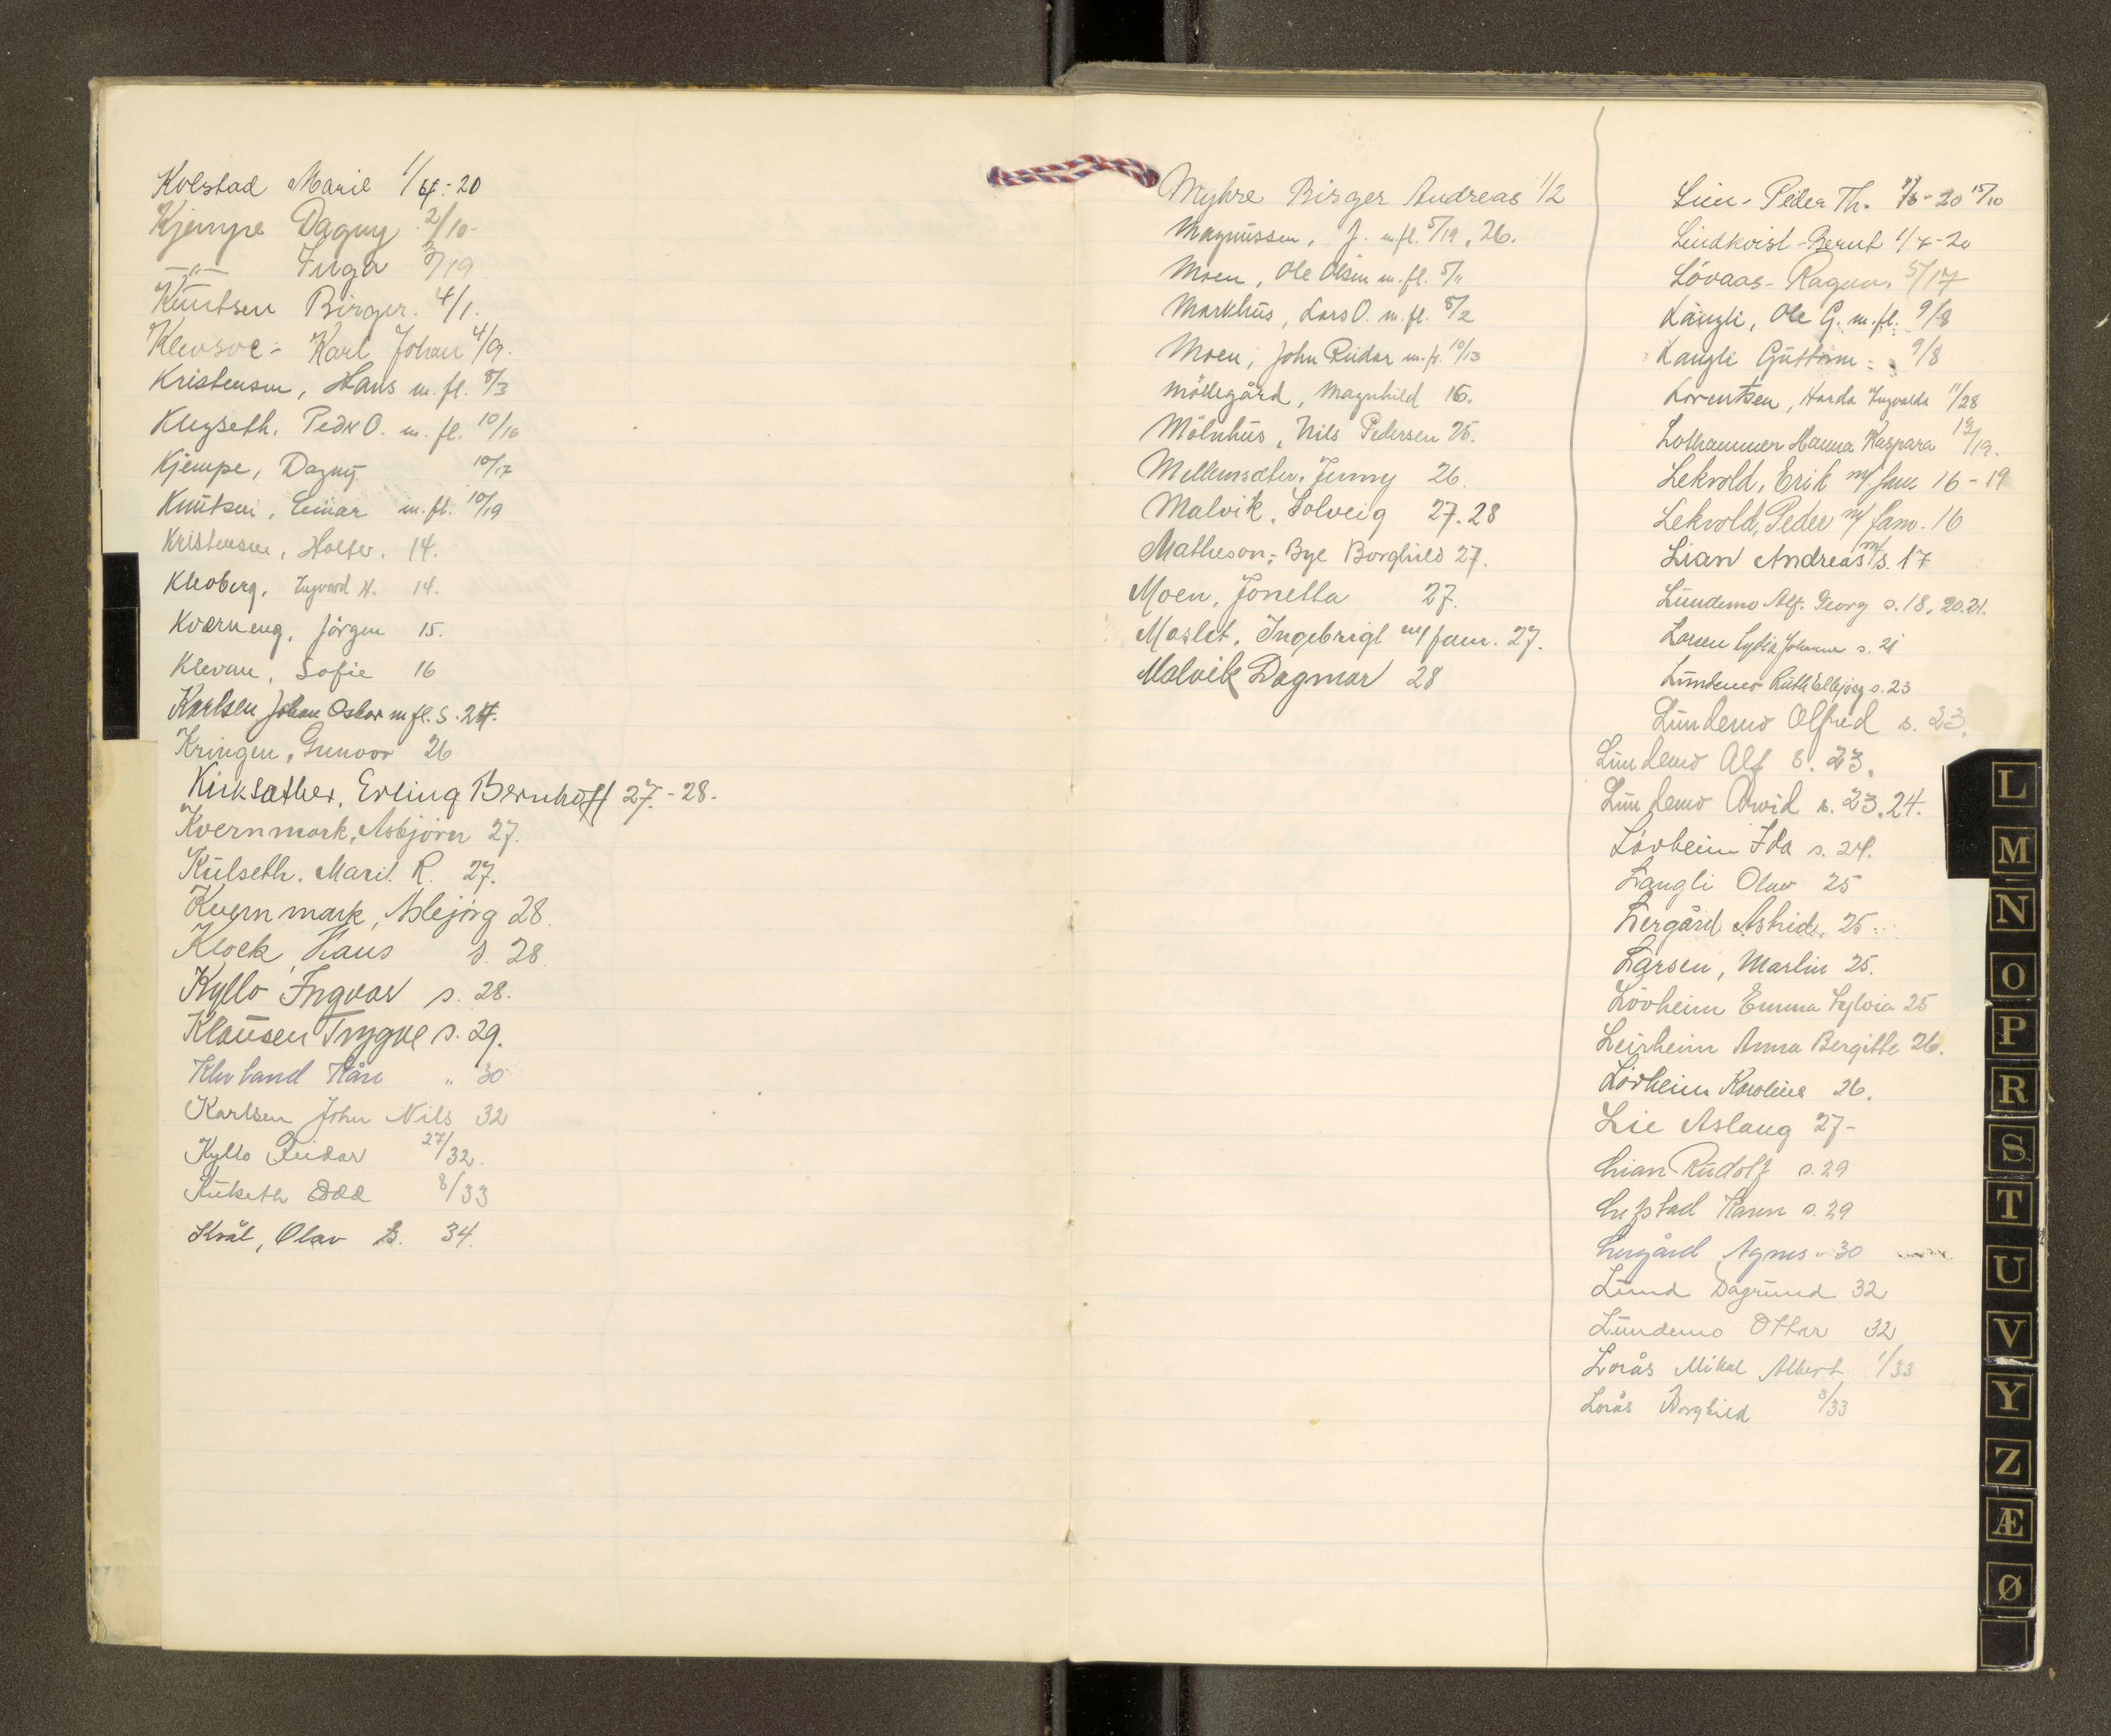 Kolstad Marie 1/4-20
Kjempe Dagny 2/10-
—"— Inga 3/19
Knutsen Birger. 4/1.
Klevsve- Karl Johan 4/9.
Kristensen, Hans m.fl. 8/3
Klegseth, Peder O. m.fl. 10/16
Kjempe, Dagny 10/17
Knutsen, Einar m.fl. 10/19
Kristensen, Holter. 14.
Kleoberg, Ingvard H. 14.
Kværneng, Jörgen 15.
Klevan, Sofie 16
Karlsen Johan Oskar m fl. S. 24.
Kringen, Gunvor 26
Kirksæther, Erling Bernhoff 27.-28.
Kvernmark, Asbjörn 27.
Kulseth. Marit R. 27.
Kvernmark, Aslejörg 28.
Klock, Hans s. 28.
Kyllo Ingvar s. 28.
Klausen Trygve s. 29.
Kleveland Kåre " 30
Karlsen John Nils 32
Kyllo Reidar 27/32.
Kulseth Odd 8/33
Kvål, Olav B. 34.
Myhre Birger Andreas 1/2
Magnussen, J. m.fl. 5/19, 26.
Moen, Ole Olsen m.fl. 5/11
Markhus, Lars O. m.fl. 8/2
Moen, John Reidar m.fl. 10/13
Möllegård, Magnhild 16.
Mölnhus, Nils Pedersen 25.
Mellemsæter, Jenny 26.
Malvik, Solveig 27.28
Matheson, Bye Borghild 27.
Moen, Jonetta 27.
Moslet, Ingebrigt m/fam. 27.
Malvik Dagmar 28
Lien- Peder Th. 20 15/10
Lindkvist-Bernt 1/7-20
Lövaas- Ragnv. 5/17
Langli, Ole G. m.fl. 9/8
Langli Guttorm 9/8
Lorentsen, Harda Ingvalda 11/28
Lothammer Hanna Kaspara 19.
Lekvold, Erik m/fam 16-19
Lekvold, Peder m/fam. 16
Lian Andreas m/ s. 17
Lundemo Alf. Georg s. 18, 20.21.
Larsen Lydia Johanne s. 21
Lundemo Ruth Elbjörg s. 23
Lundemo Alfred s. 23.
Lundemo Alf s. 23.
Lundemo Arvid s. 23.24.
Lövheim Ida s. 24.
Langli Olav 25
Liergård Astrid. 25.
Larsen, Martin 25.
Lövheim Emma Sylvia 25
Leirheim Anna Bergitte 26.
Lövheim Karoline 26.
Lie Aslaug 27-
Lian Rudolf s. 29
Lefstad Karen s. 29
Liergård Agnes " 30
Lund Dagrund 32
Lundemo Ottar 32
Lorås Mikal Albert 1/33
Lorås Borghild 3/33
L
M
N
O
P
R
S
T
U
V
Y
Z
Æ
Ø